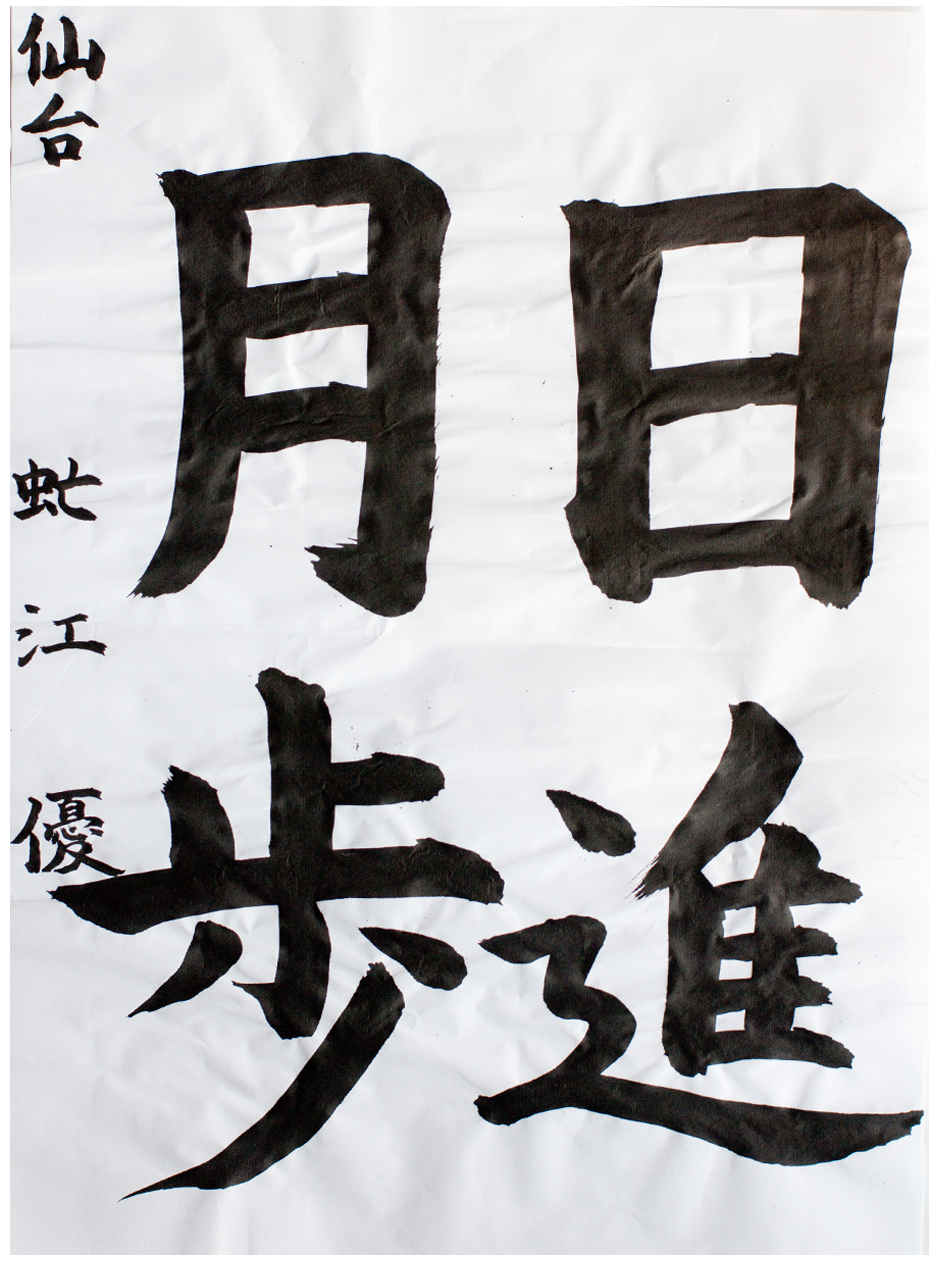 日進
月歩
仙台 虻江 優